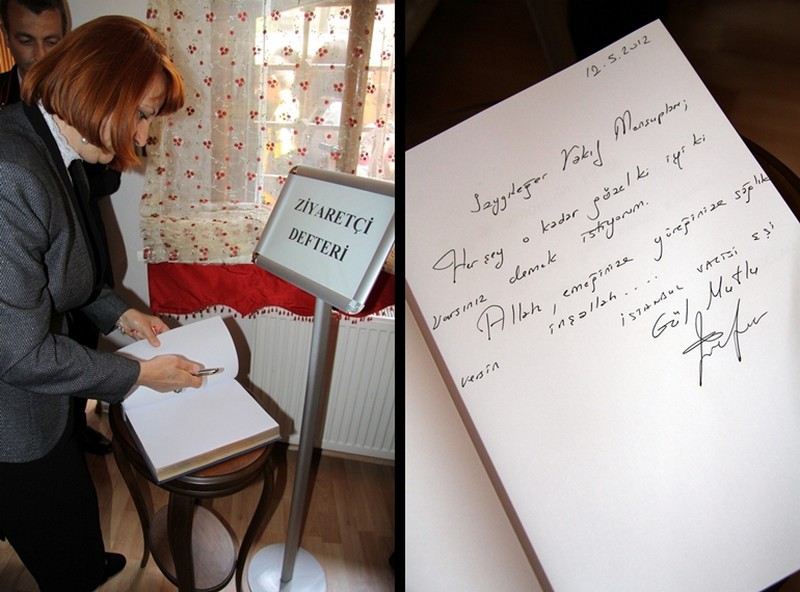 ZİYARETÇİ
DEFTERİ
12.5.2012
Saygıdeğer Vakıf Mensupları;
Herşey o kadar güzel ki iyi ki
varsınız demek istiyorum.
Allah, emeğinize yüreğinize sağlık
versin inşallah....
İSTANBUL VALİSİ EŞİ
Gül Mutlu